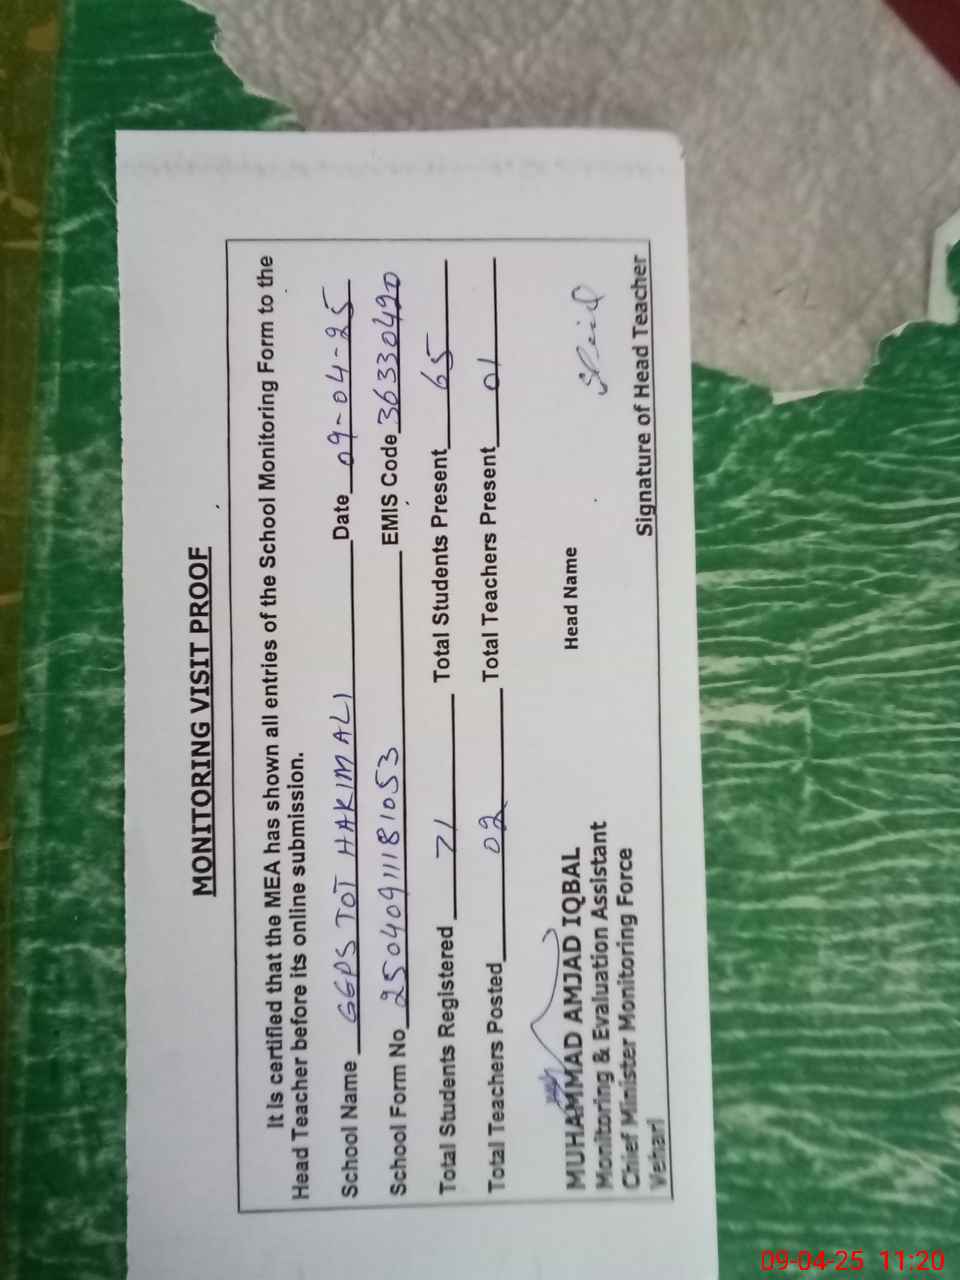 MONITORING VISIT PROOF
It is certified that the MEA has shown all entries of the School Monitoring Form to the
Head Teacher before its online submission.
School Name GGPS TOT HAKIM ALI Date 09-04-25
School Form No 25040911181053 EMIS Code 36330420
Total Students Registered 71 Total Students Present 65
Total Teachers Posted 02 Total Teachers Present 01
MUHAMMAD AMJAD IQBAL Head Name
Monitoring & Evaluation Assistant
Chief Minister Monitoring Force
Vehari Signature of Head Teacher
09-04-25 11:20